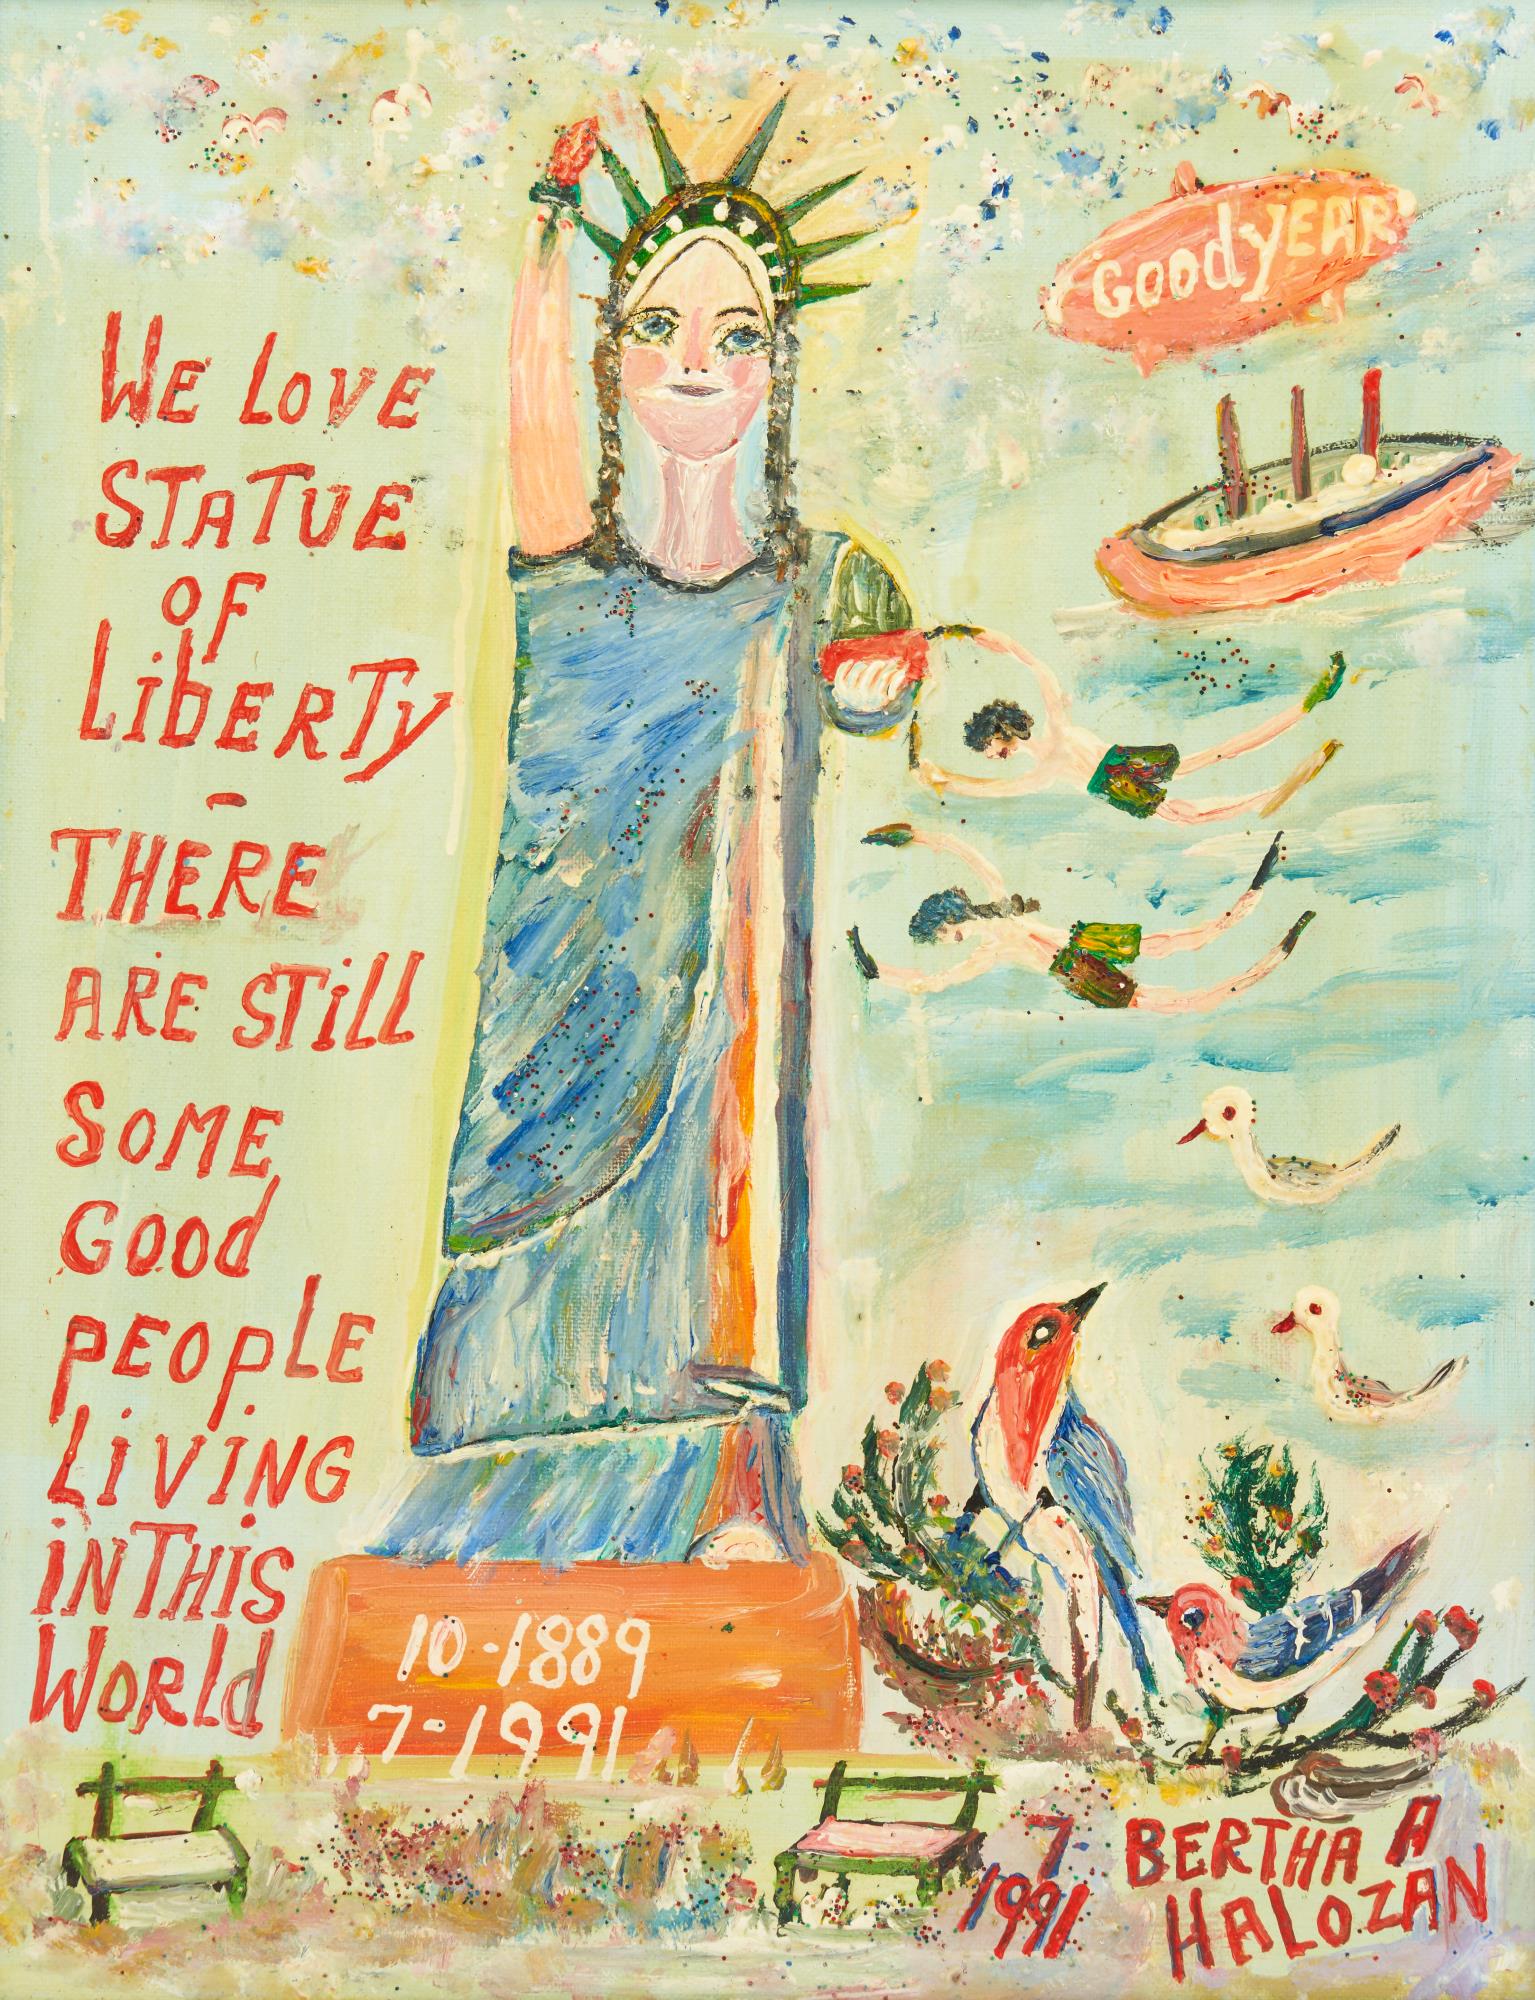 WE LOVE
STATUE
OF
LibERTy
-
THERE
ARE STiLL
SOME
Good
pEOpLE
LiViNG
iN THiS
WORld
GoodyEAR
10-1889
7-1991
7-
1991
BERTHA A
HALOZAN